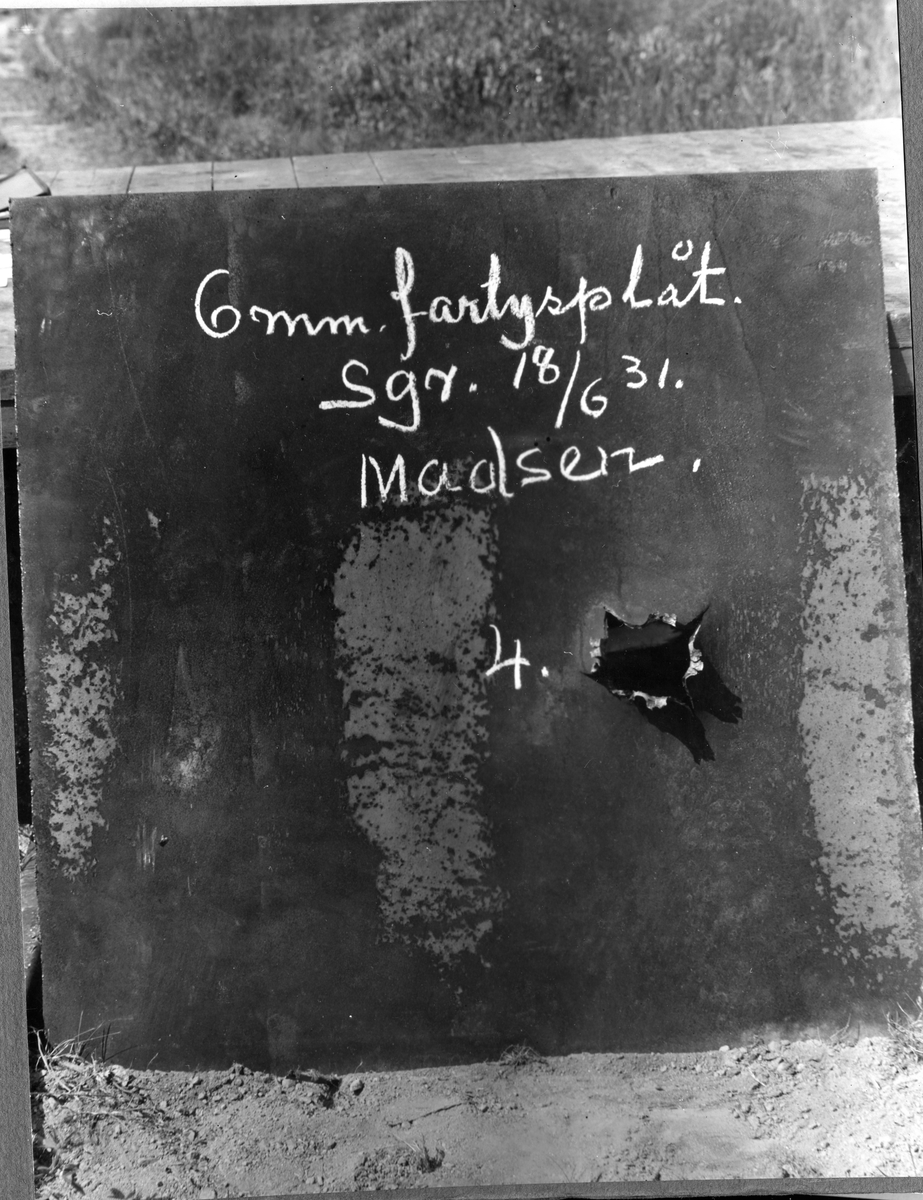 6mm. fartysplåt.
Sgr. 18/6 31.
Madsen.
4.